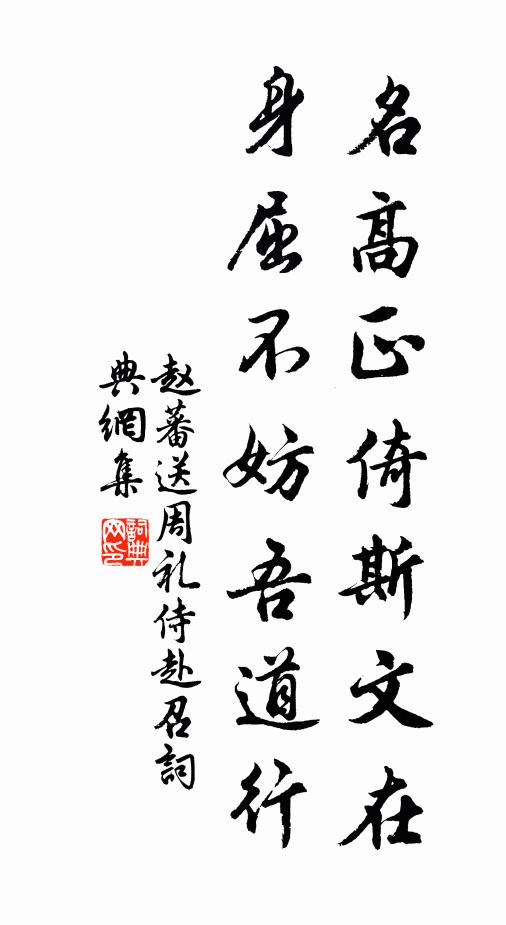 名高正倚斯文在
身屈不妨吾道行
赵蕃送周礼侍赴召詞
典網集
詞典
网印